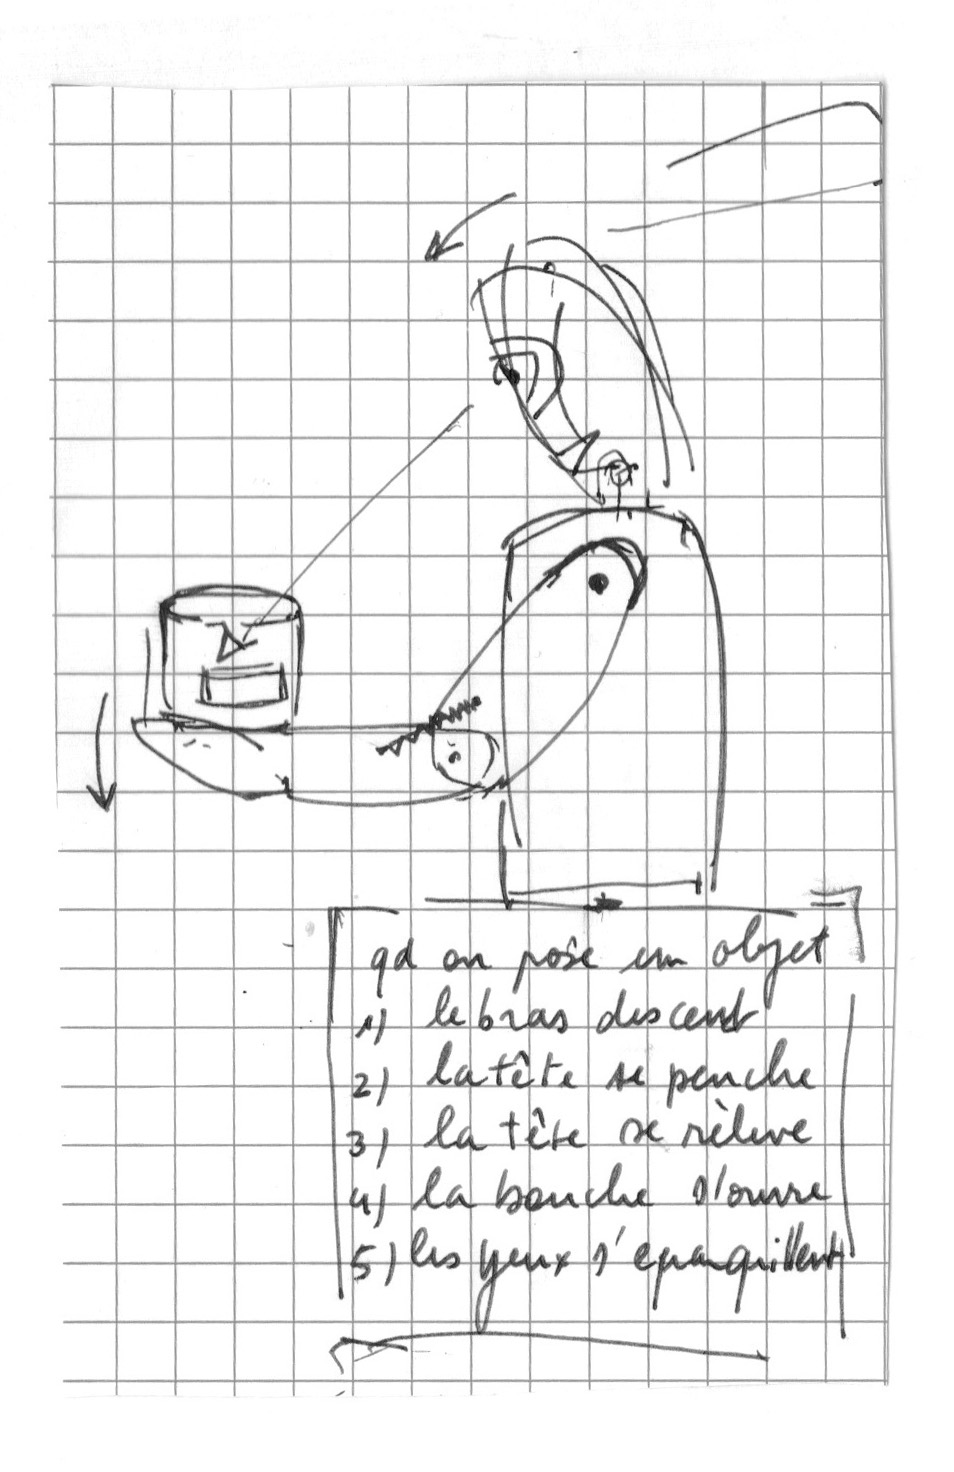 qd on pose un objet
1) le bras descent
2) la tête se penche
3) la tête se rèleve
4) la bouche s'ouvre
5) les yeux s'epanquillent